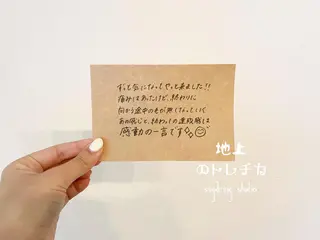 ずっと気になってやっと来ました!!
痛みはあったけど、終わりに
向かう途中のもが無くなっていく
あの感じと、終わっての達成感は
感動の一言です😊
地上
のトレチカ